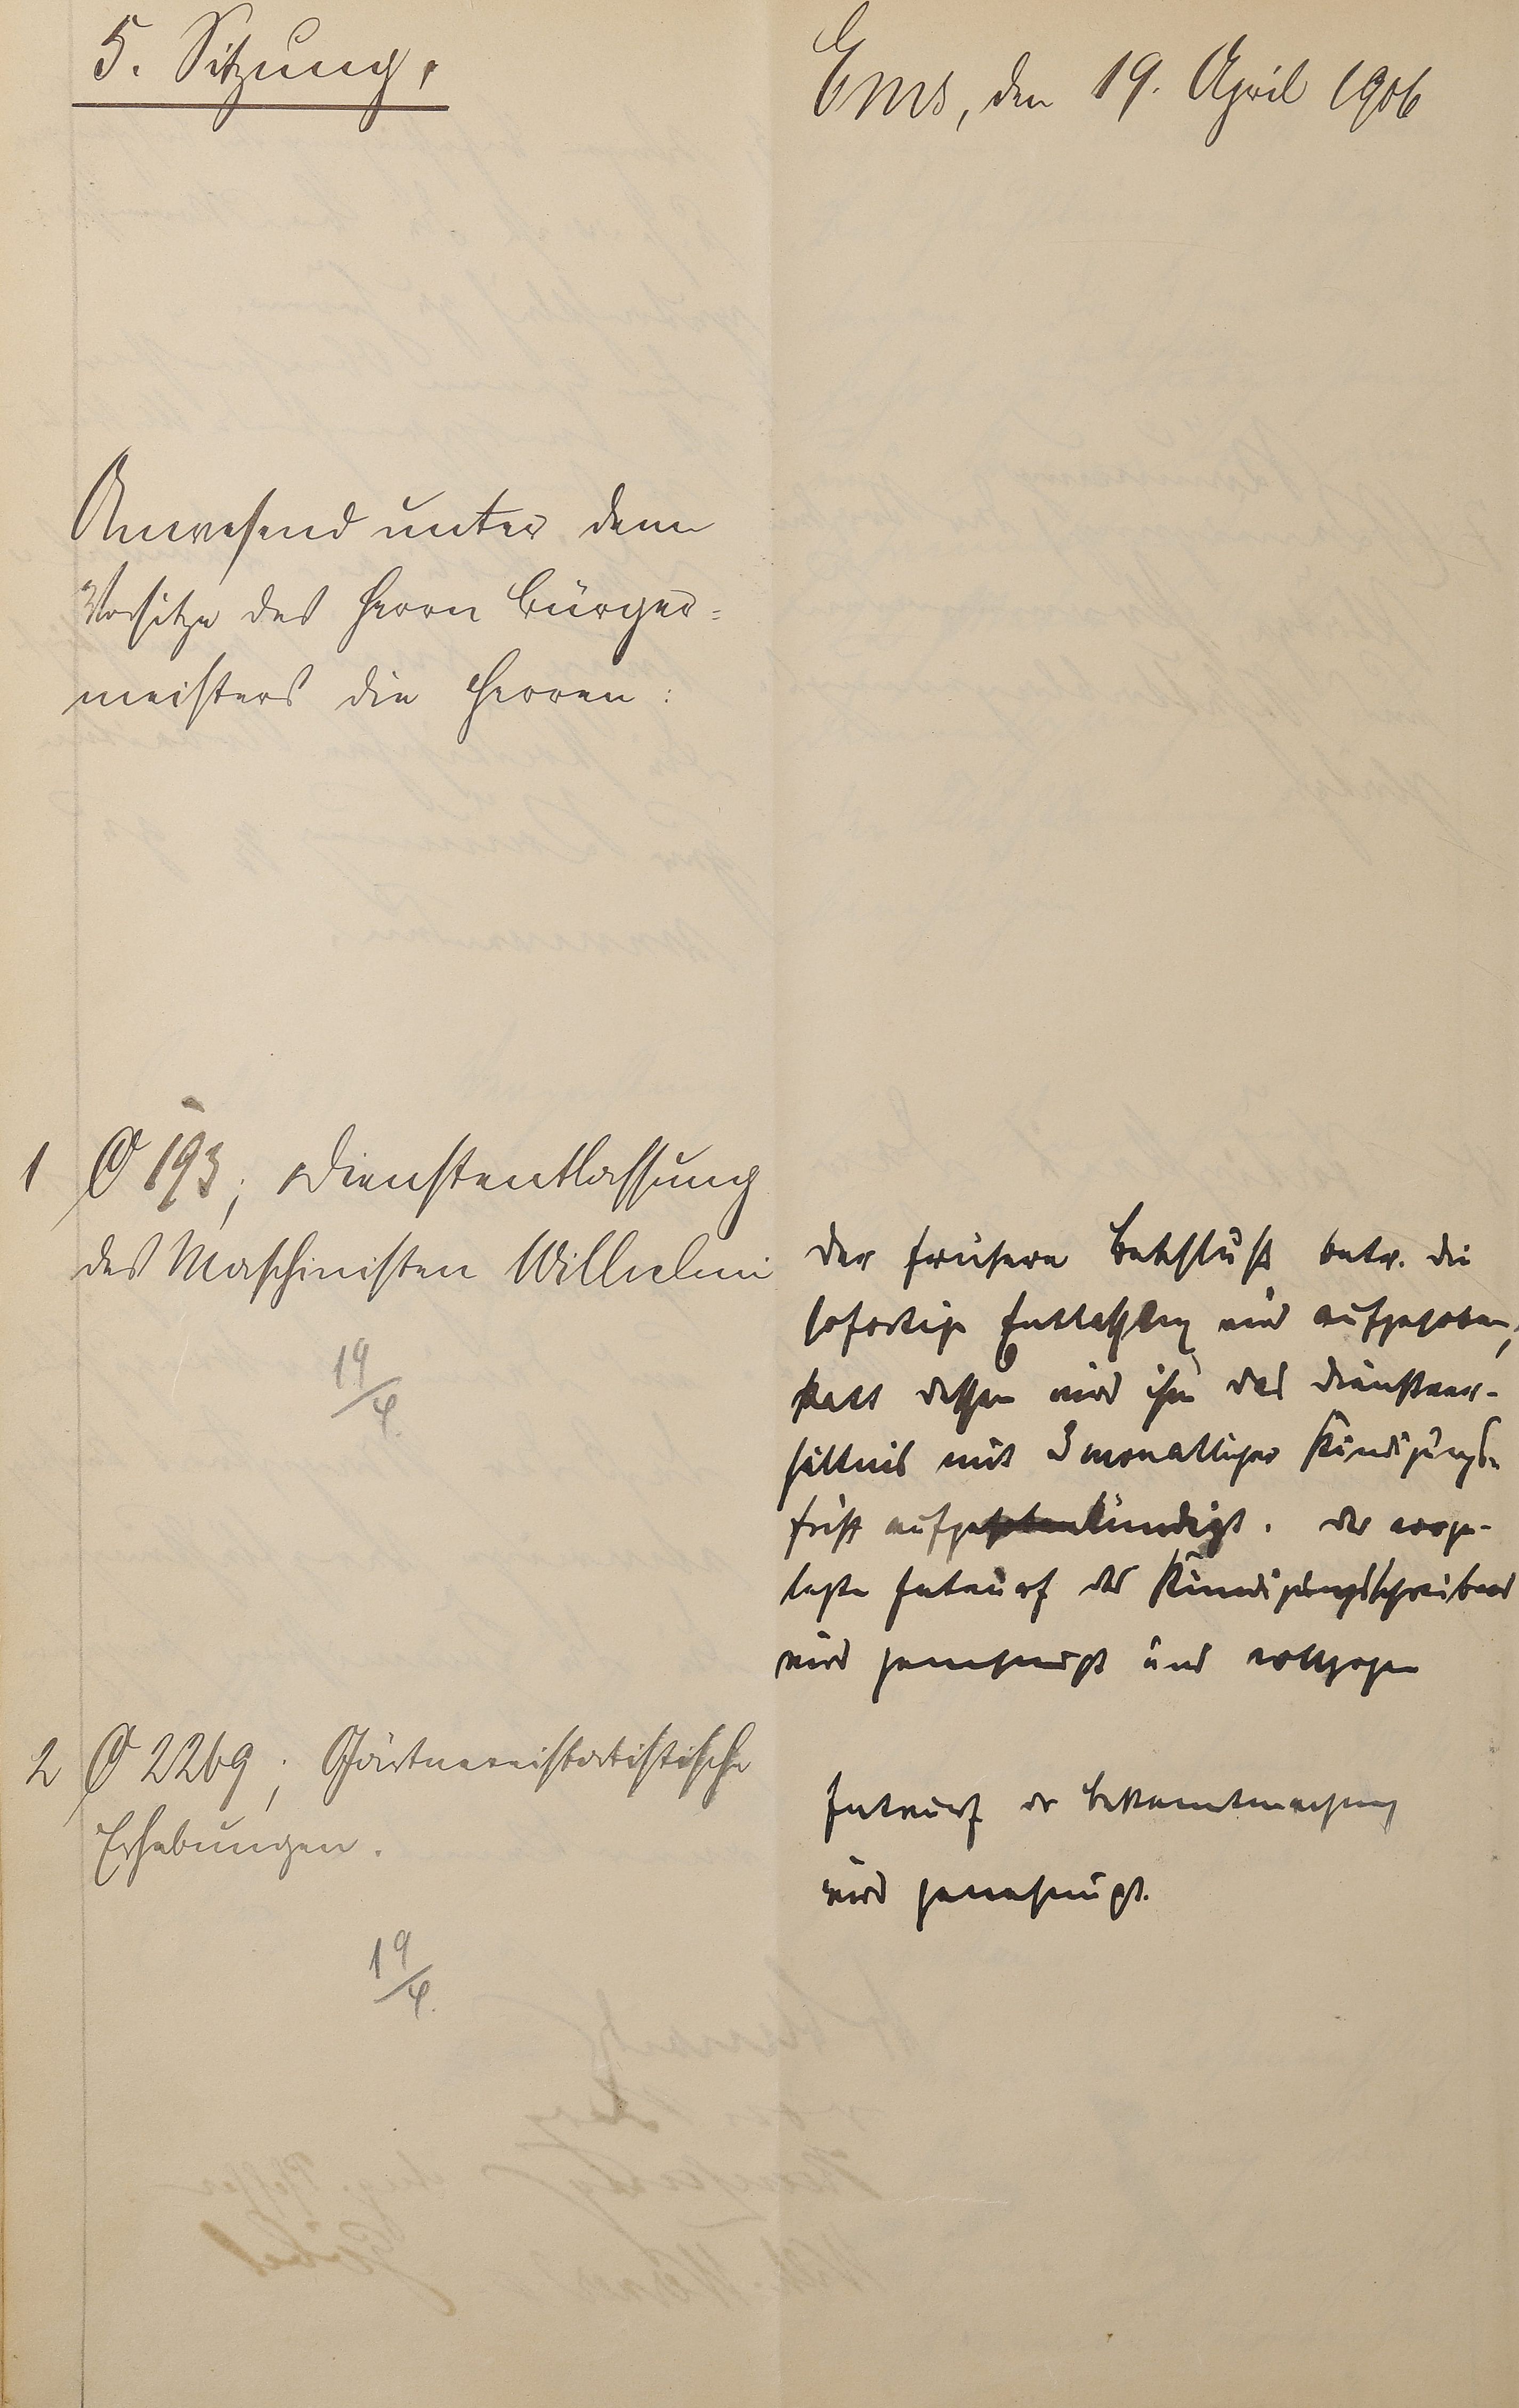 5. Sitzung.
Ems, den 19. April 1906
Anwesend unter dem
Vorsitze des Herrn Bürger-
meisters die Herren:
1 O 193; Dienstentlassung
des Maschinisten Wilhelmi
19/4.
Der frühere Beschluß betr. die
sofortige Entlassung wird aufgehoben,
statt dessen wird ihm das Dienstver-
hältnis mit 3 monatlicher Kündigungs-
frist aufgekündigt. Der vorge-
legte Entwurf des Kündigungsschreibens
wird genehmigt und vollzogen
2 O 2269; Gärtnereistatistische
Erhebungen.
19/4.
Entwurf der Bekanntmachung
wird genehmigt.